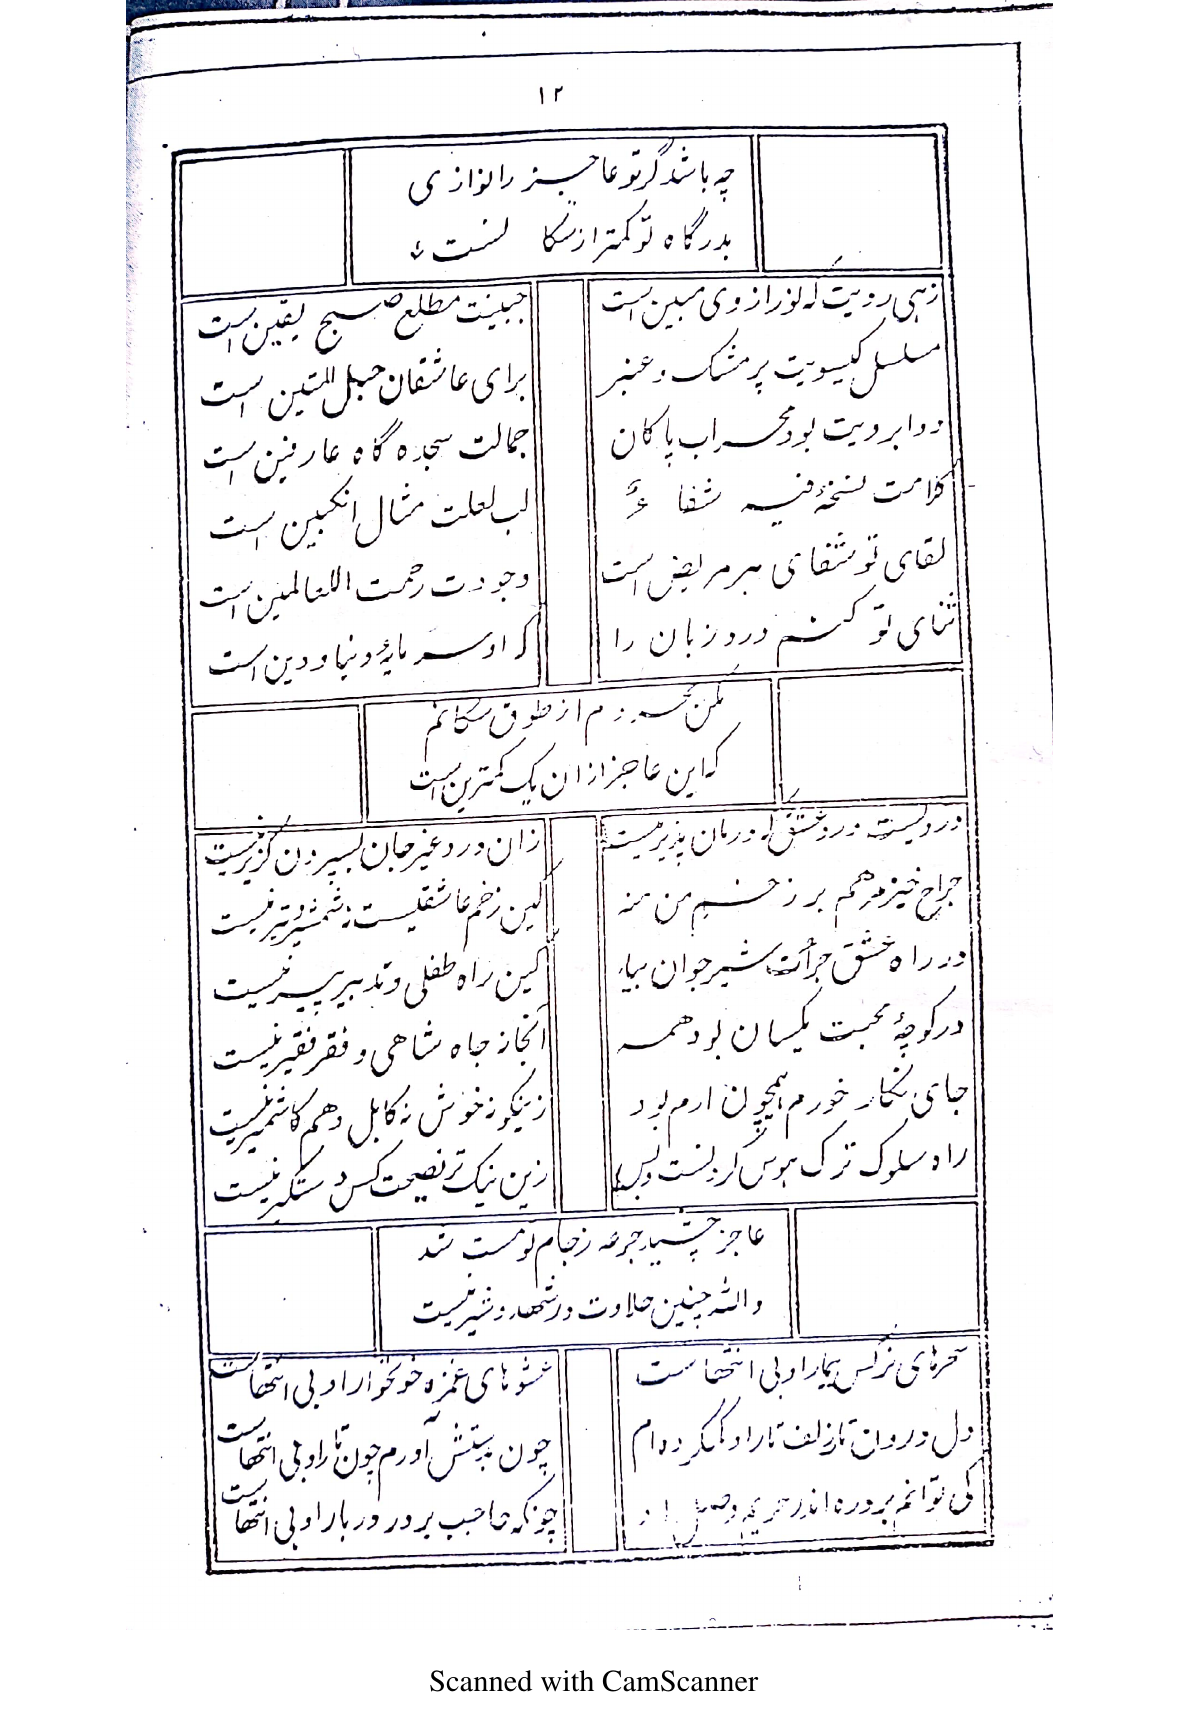 ۱۲
چه باشد گر تو عاجز را نوازی
بدرگاه تو کمتر از سکانست
زهی رویت که نور از وی مبین است
جبینت مطلع صبح یقین است
مسلسل کیسویت پر مشک و عنبر
برای عاشقان حبل المتین است
دو ابرویت بود محراب پاکان
جمالت سجده گاه عارفین است
کلامت نسخهٔ فیه شفاءٌ
لب لعلت مثال انکبین است
لقای تو شفای هر مریض است
وجودت رحمت اللعالمین است
ثنای تو کنم درد زبان را
که او سرمایهٔ دنیا و دین است
مکن محروم از طوق سکانم
که این عاجز ازان یک کمترین است
دردیست درد عشق که درمان پذیر نیست
زان درد غیر جان بسپردن کزیر نیست
جراح خیز مرهم بر زخم من منه
کین زخم عاشقلیست ز شمشیر و تیر نیست
در راه عشق جرأت شیر جوان بیاء
کین راه طفلی و تدبیر پیر نیست
در کوچهٔ محبت یکسان بود همه
آنجا نه جاه شاهی و فقر فقیر نیست
جای نکار خورم همچون ارم بود
زینکونه خوش نه کابل و هم کاشمیر نیست
راه سلوک ترک هوس کردنست و بس
زین نیک تر نصیحت کس دستکیر نیست
عاجز چشید جرعه ز جام تو مست شد
والله چنین حلاوت در شهد و شیر نیست
سحرهای نرکس بیمار او بی انتها ست
عشوهای غمزه خونخوار او بی انتهاست
دل درون تار زلف تار او کمکرده ام
چون بدستش آورم چون تار او بی انتهاست
کی توانم برد ره اندر حریم وصل او
چونکه حاجب بر در دربار او بی انتهاست
Scanned with CamScanner